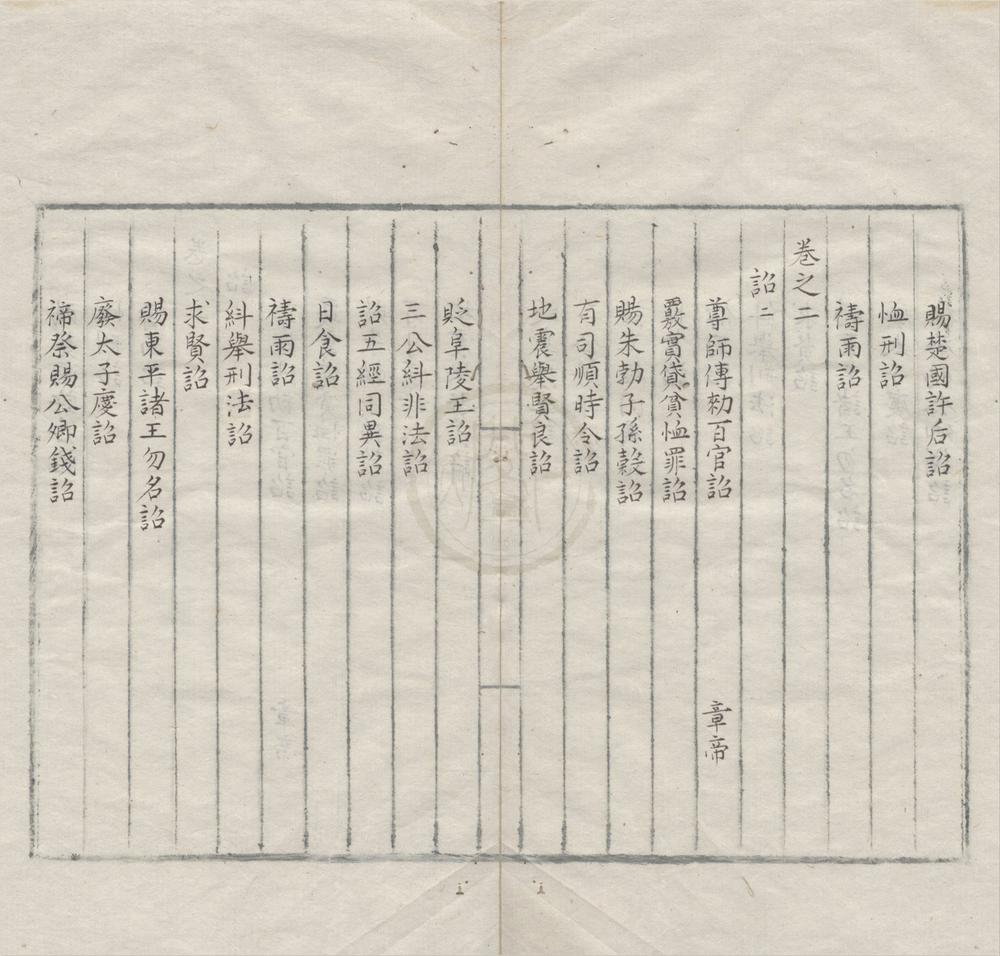 賜楚國許后詔
恤刑詔
禱雨詔
卷之二
詔二
尊師傅勑百官詔 章帝
覈實貸貧恤罪詔
賜朱勃子孫穀詔
有司順時令詔
地震舉賢良詔
貶阜陵王詔
三公糾非法詔
詔五經同異詔
日食詔
禱雨詔
糾舉刑法詔
求賢詔
賜東平諸王勿名詔
廢太子慶詔
禘祭賜公卿錢詔